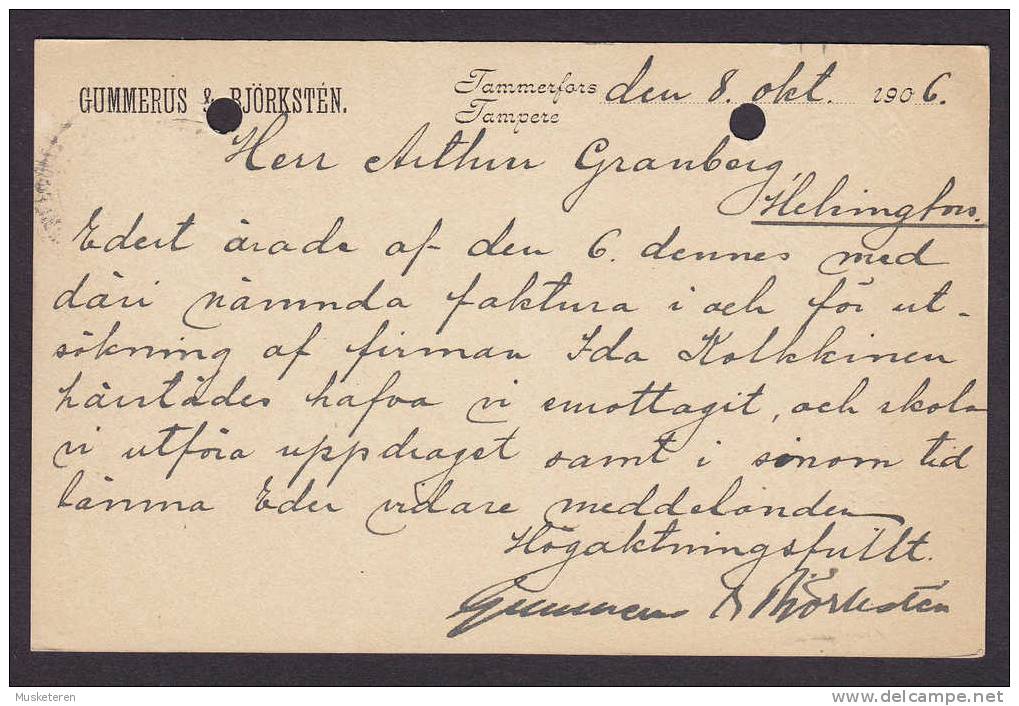 GUMMERUS & BJÖRKSTÉN.
Tammerfors
Tampere
den 8. okt. 1906.
Herr Arthur Granberg,
Helsingfors.
Edert ärade af den 6. dennes med
däri nämnda faktura i och för ut-
sökning af firman Ida Kolkkinen
härstädes hafva vi emottagit, och skola
vi utföra uppdraget samt i sinom tid
lämna Eder vidare meddelanden
Högaktningsfullt.
Gummerus & Björkstén
Musketeren
www.delcampe.net